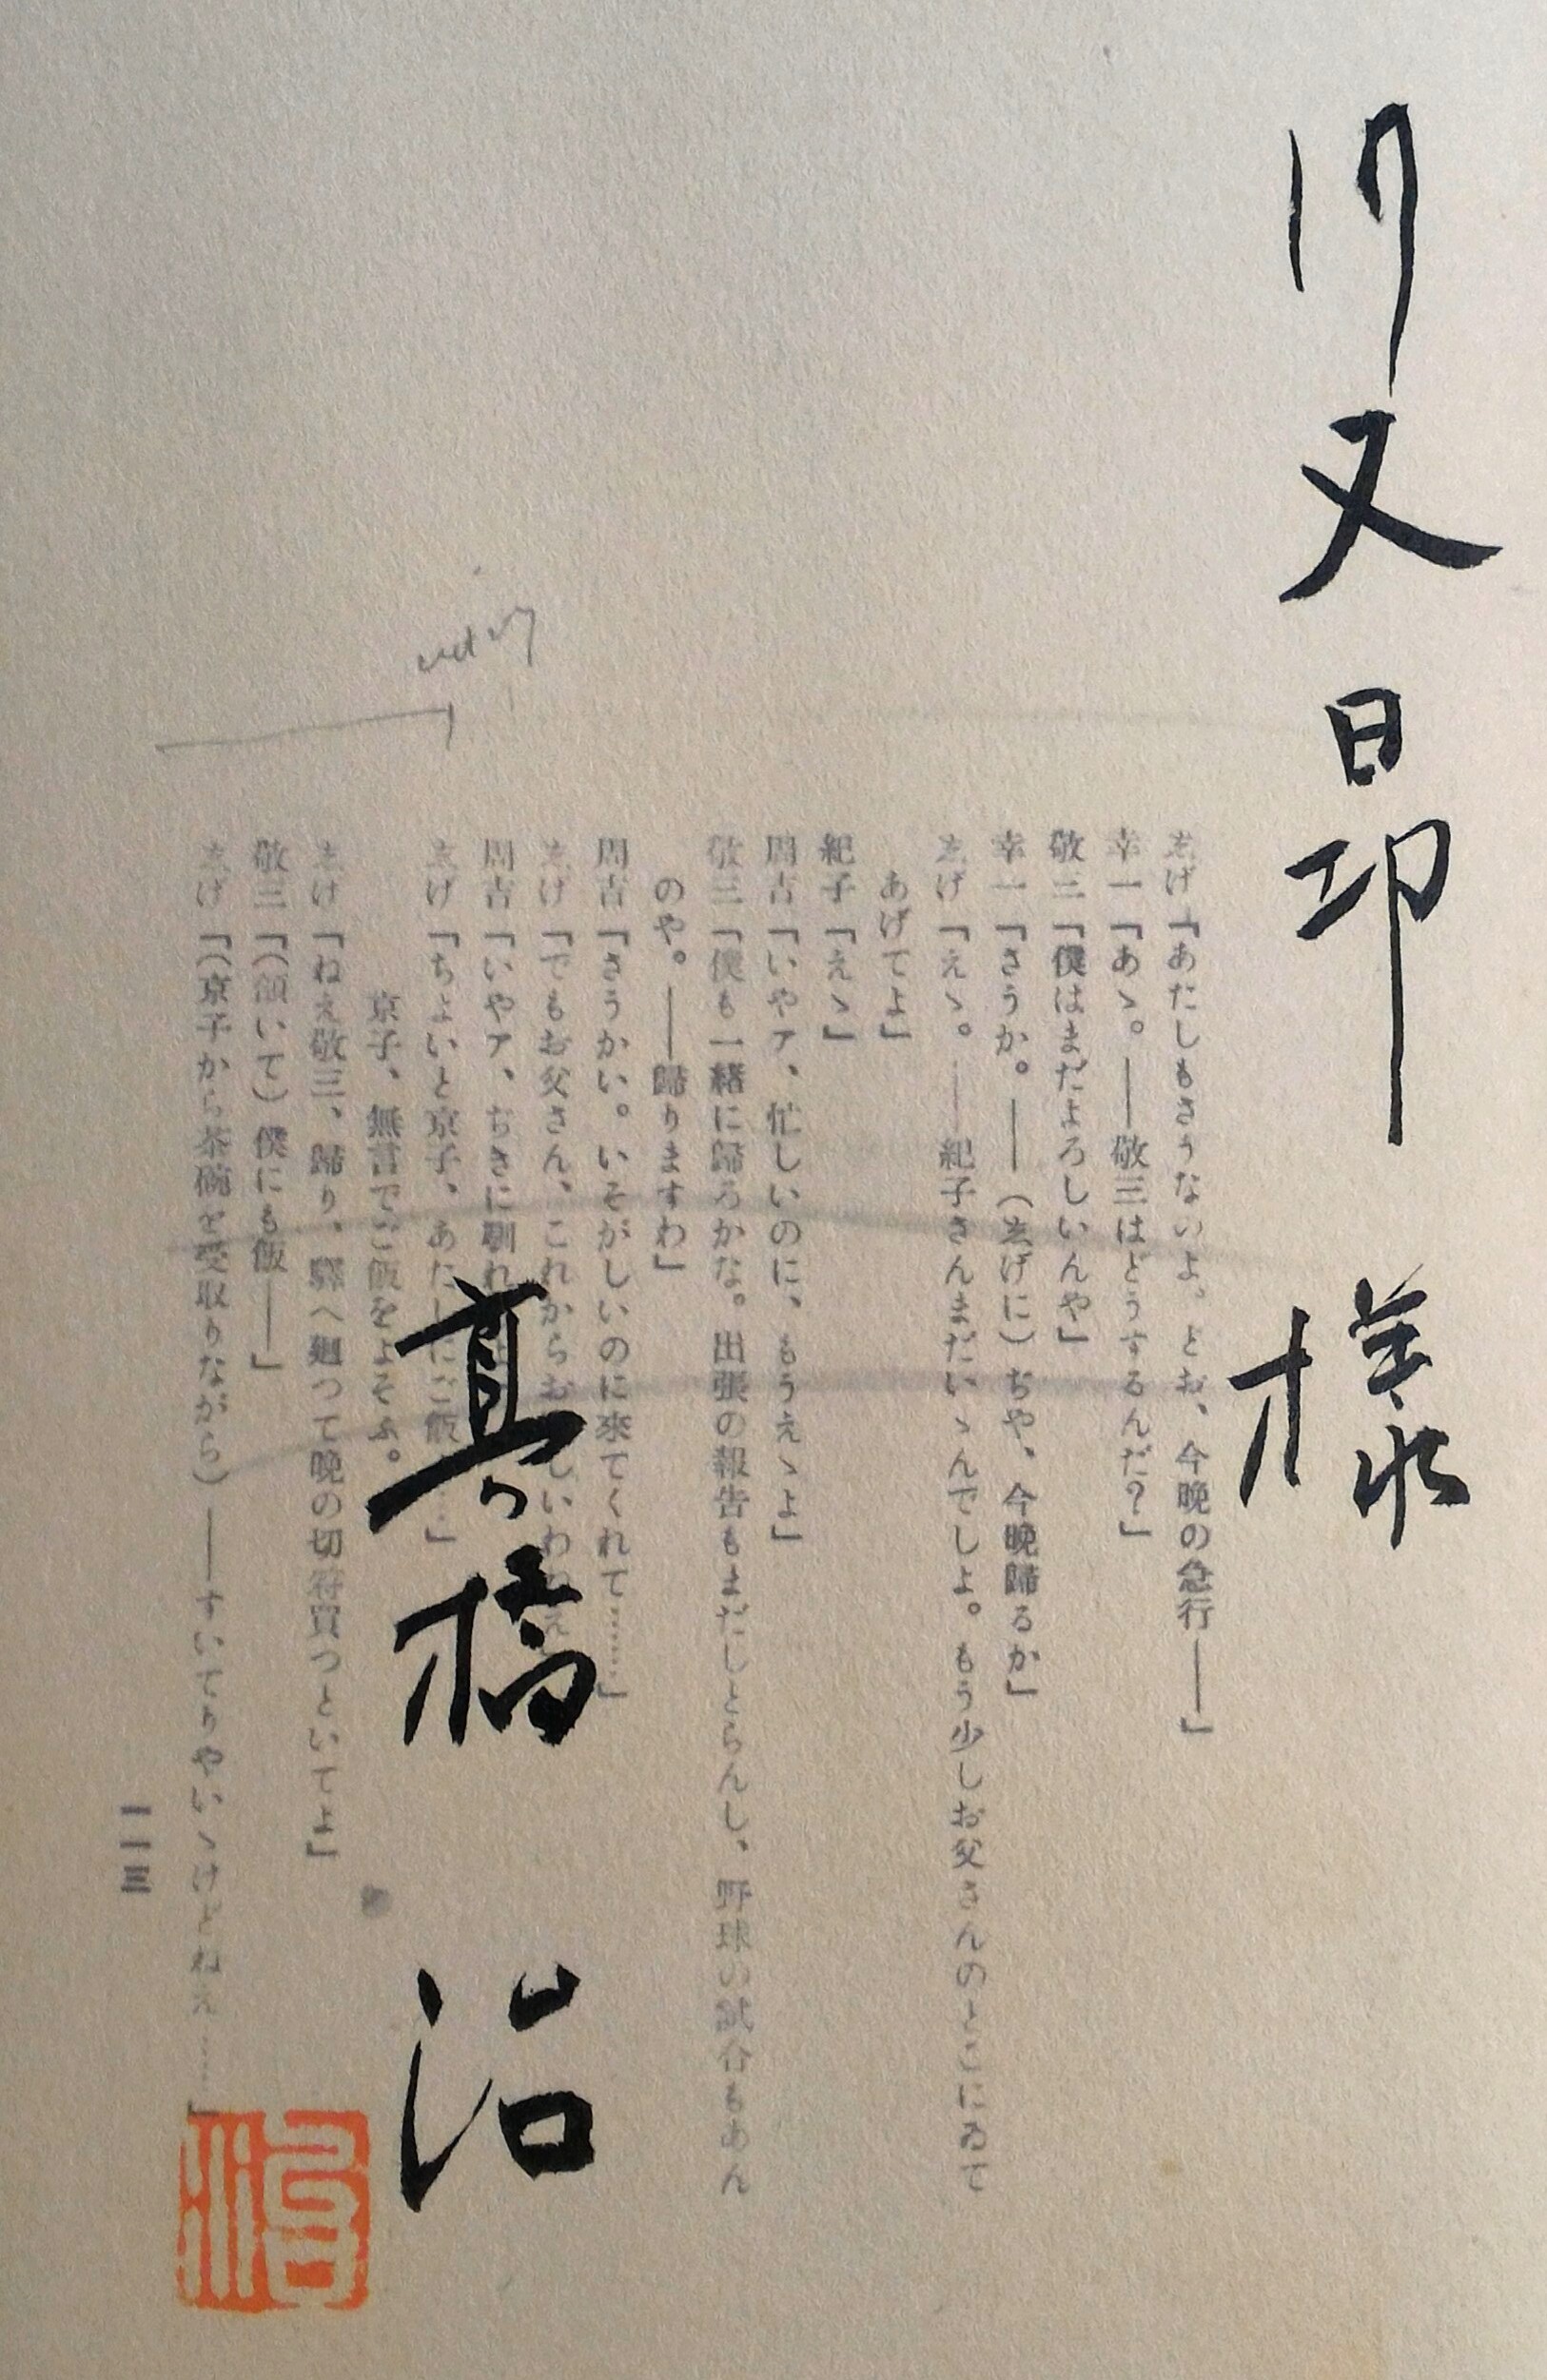 川又昻様
しげ「あたしもさうなのよ。とお、今晩の急行――」
幸一「あゝ。――敬三はどうするんだ?」
敬三「僕はまだよろしいんや」
幸一「さうか。――（しげに）ぢや、今晩歸るか」
しげ「えゝ。――紀子さんまだいゝんでしよ。もう少しお父さんのとこにゐて
あげてよ」
紀子「えゝ」
周吉「いやア、忙しいのに、もうえゝよ」
敬三「僕も一緒に歸ろかな。出張の報告もまだしとらんし、野球の試合もあん
のや。――歸りますわ」
周吉「さうかい。いそがしいのに來てくれて……」
しげ「でもお父さん、これからお
しいわねえ
周吉「いやア、ぢきに馴れ
しげ「ちよいと京子、あたしにご飯……」
京子、無言でご飯をよそふ。
しげ「ねえ敬三、歸り、驛へ廻つて晩の切符買つといてよ」
敬三「（頷いて）僕にも飯――」
しげ「（京子から茶碗を受取りながら）――すいてりやいゝけどねえ……」
一一三
髙橋治
治